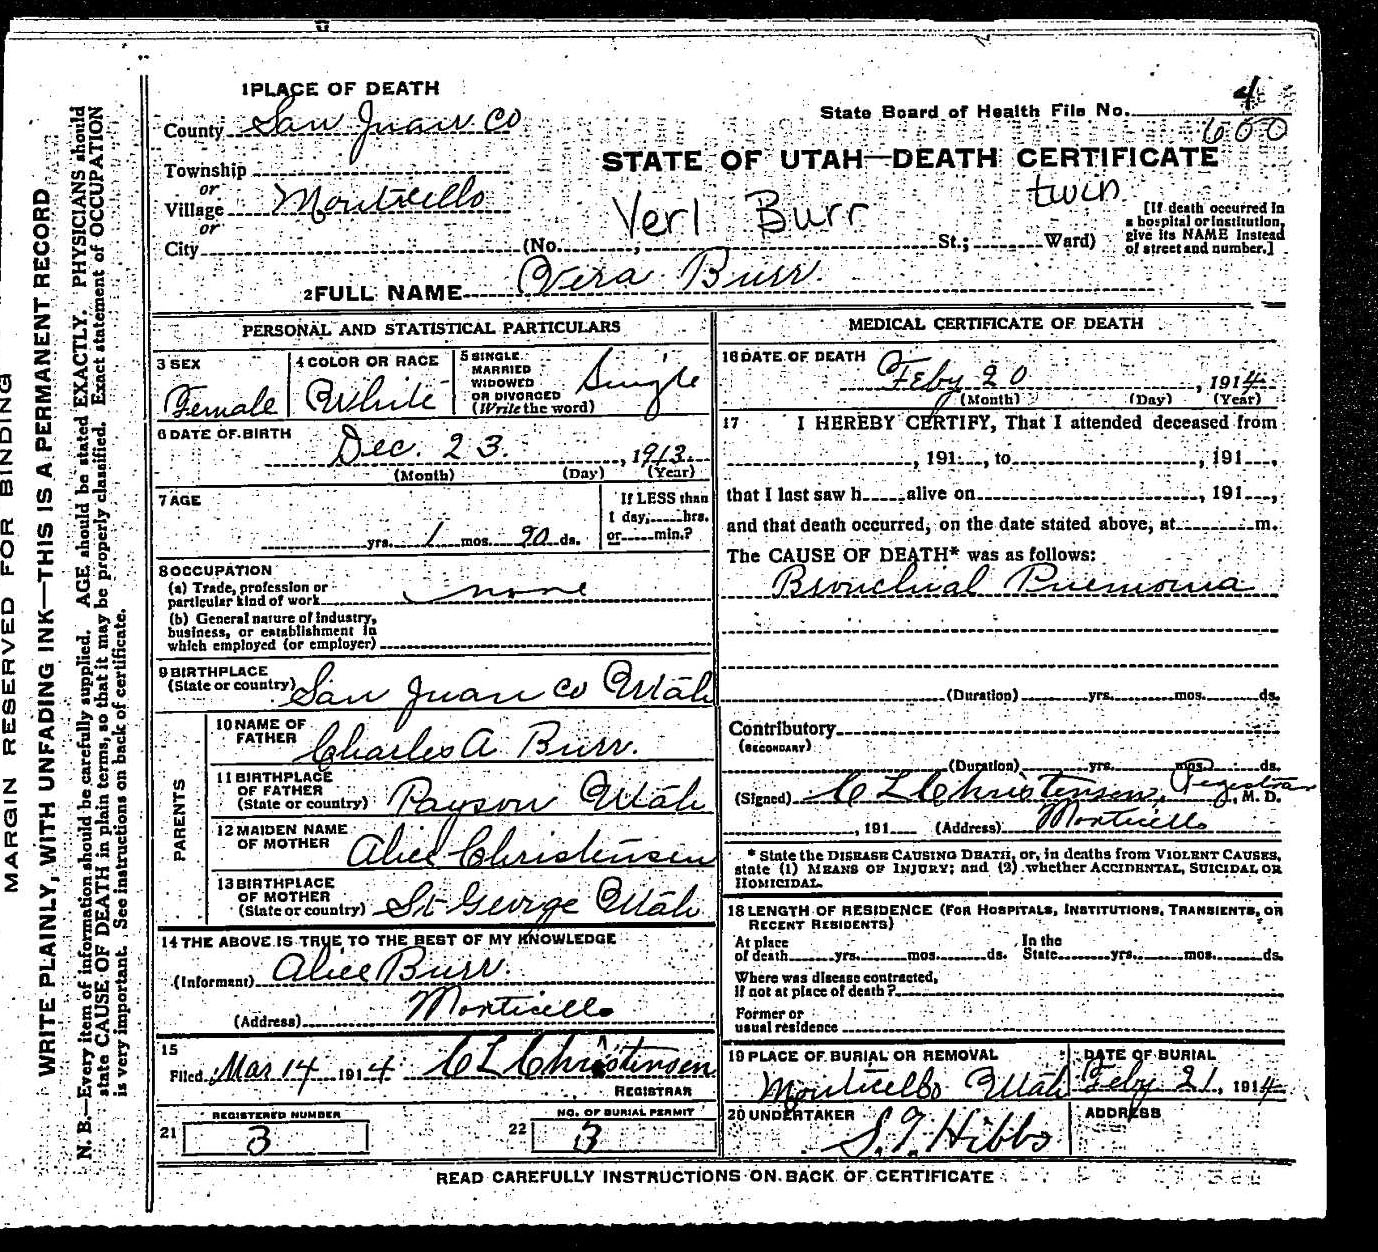 MARGIN RESERVED FOR BINDING
WRITE PLAINLY, WITH UNFADING INK—THIS IS A PERMANENT RECORD
N. B.—Every item of information should be carefully supplied. AGE should be stated EXACTLY. PHYSICIANS should
state CAUSE OF DEATH in plain terms, so that it may be properly classified. Exact statement of OCCUPATION
is very important. See instructions on back of certificate.
1 PLACE OF DEATH
County San Juan Co
Township
or
Village Monticello
or
City
(No. , St.; Ward)
State Board of Health File No. 4
600
STATE OF UTAH—DEATH CERTIFICATE
Verl Burr twin
[If death occurred in
a hospital or institution,
give its NAME instead
of street and number.]
2 FULL NAME Vera Burr.
PERSONAL AND STATISTICAL PARTICULARS
3 SEX
Female
4 COLOR OR RACE
White
5 SINGLE
MARRIED
WIDOWED
OR DIVORCED
(Write the word)
Single
6 DATE OF BIRTH
Dec. 23. , 1913.
(Month) (Day) (Year)
7 AGE
yrs. 1 mos. 90 ds.
If LESS than
1 day, hrs.
or min.?
8 OCCUPATION
(a) Trade, profession or
particular kind of work none
(b) General nature of industry,
business, or establishment in
which employed (or employer)
9 BIRTHPLACE
(State or country) San Juan Co Utah
PARENTS
10 NAME OF
FATHER Charles A Burr.
11 BIRTHPLACE
OF FATHER
(State or country) Payson Utah
12 MAIDEN NAME
OF MOTHER Alice Christensen
13 BIRTHPLACE
OF MOTHER
(State or country) St George Utah
14 THE ABOVE IS TRUE TO THE BEST OF MY KNOWLEDGE
(Informant) Alice Burr.
(Address) Monticello
15
Filed Mar 14 1914 C L Christensen
REGISTRAR
REGISTERED NUMBER
21 3
NO. OF BURIAL PERMIT
22 3
MEDICAL CERTIFICATE OF DEATH
16 DATE OF DEATH
Feby 20 , 1914
(Month) (Day) (Year)
17 I HEREBY CERTIFY, That I attended deceased from
, 191 , to , 191 ,
that I last saw h alive on , 191 ,
and that death occurred, on the date stated above, at m.
The CAUSE OF DEATH* was as follows:
Bronchial Pnemonia
(Duration) yrs. mos. ds.
Contributory
(SECONDARY)
(Duration) yrs. mos. ds.
(Signed) C L Christensen, Registrar, M. D.
, 191 (Address) Monticello
* State the DISEASE CAUSING DEATH, or, in deaths from VIOLENT CAUSES,
state (1) MEANS OF INJURY; and (2) whether ACCIDENTAL, SUICIDAL OR
HOMICIDAL.
18 LENGTH OF RESIDENCE (FOR HOSPITALS, INSTITUTIONS, TRANSIENTS, OR
RECENT RESIDENTS)
At place
of death yrs. mos. ds.
In the
State yrs. mos. ds.
Where was disease contracted,
if not at place of death?
Former or
usual residence
19 PLACE OF BURIAL OR REMOVAL
Monticello Utah
DATE OF BURIAL
Feby 21, 1914
20 UNDERTAKER
S. T. Hibbs
ADDRESS
READ CAREFULLY INSTRUCTIONS ON BACK OF CERTIFICATE